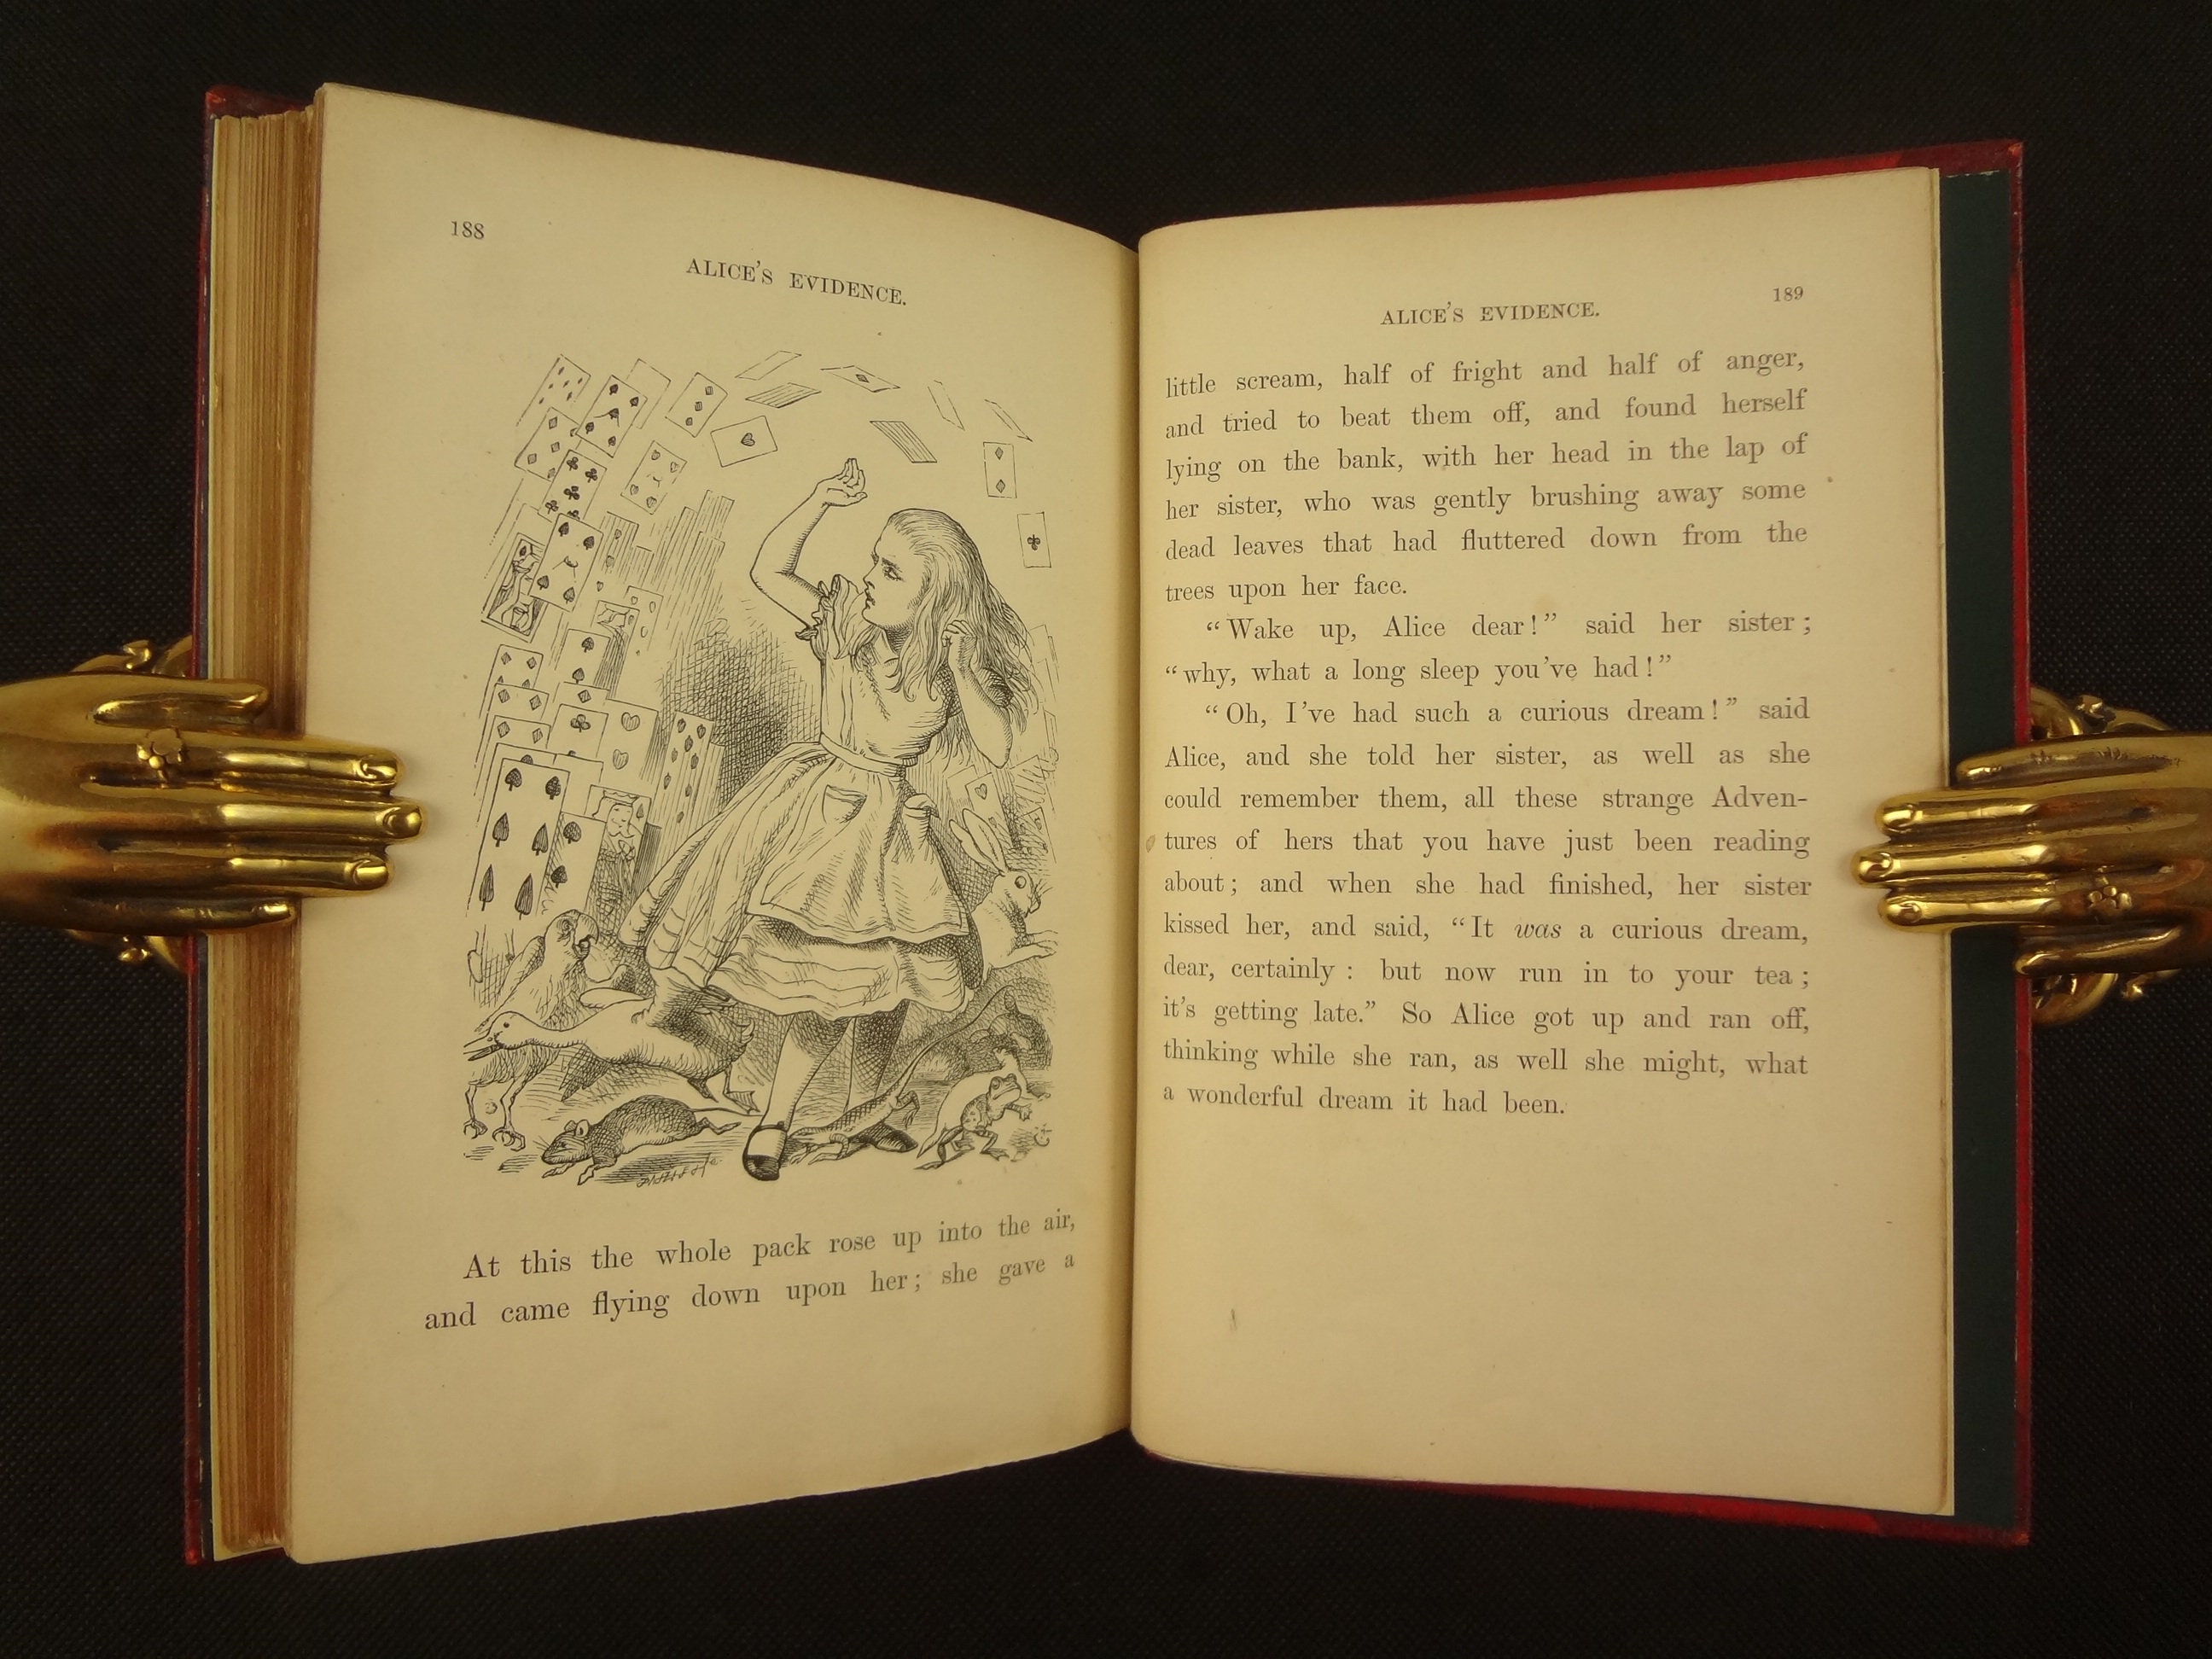 188
ALICE'S EVIDENCE.
At this the whole pack rose up into the air,
and came flying down upon her; she gave a
189
ALICE'S EVIDENCE.
little scream, half of fright and half of anger,
and tried to beat them off, and found herself
lying on the bank, with her head in the lap of
her sister, who was gently brushing away some
dead leaves that had fluttered down from the
trees upon her face.
“Wake up, Alice dear!” said her sister;
“why, what a long sleep you've had!”
“Oh, I've had such a curious dream!” said
Alice, and she told her sister, as well as she
could remember them, all these strange Adven-
tures of hers that you have just been reading
about; and when she had finished, her sister
kissed her, and said, “It was a curious dream,
dear, certainly: but now run in to your tea;
it's getting late.” So Alice got up and ran off,
thinking while she ran, as well she might, what
a wonderful dream it had been.